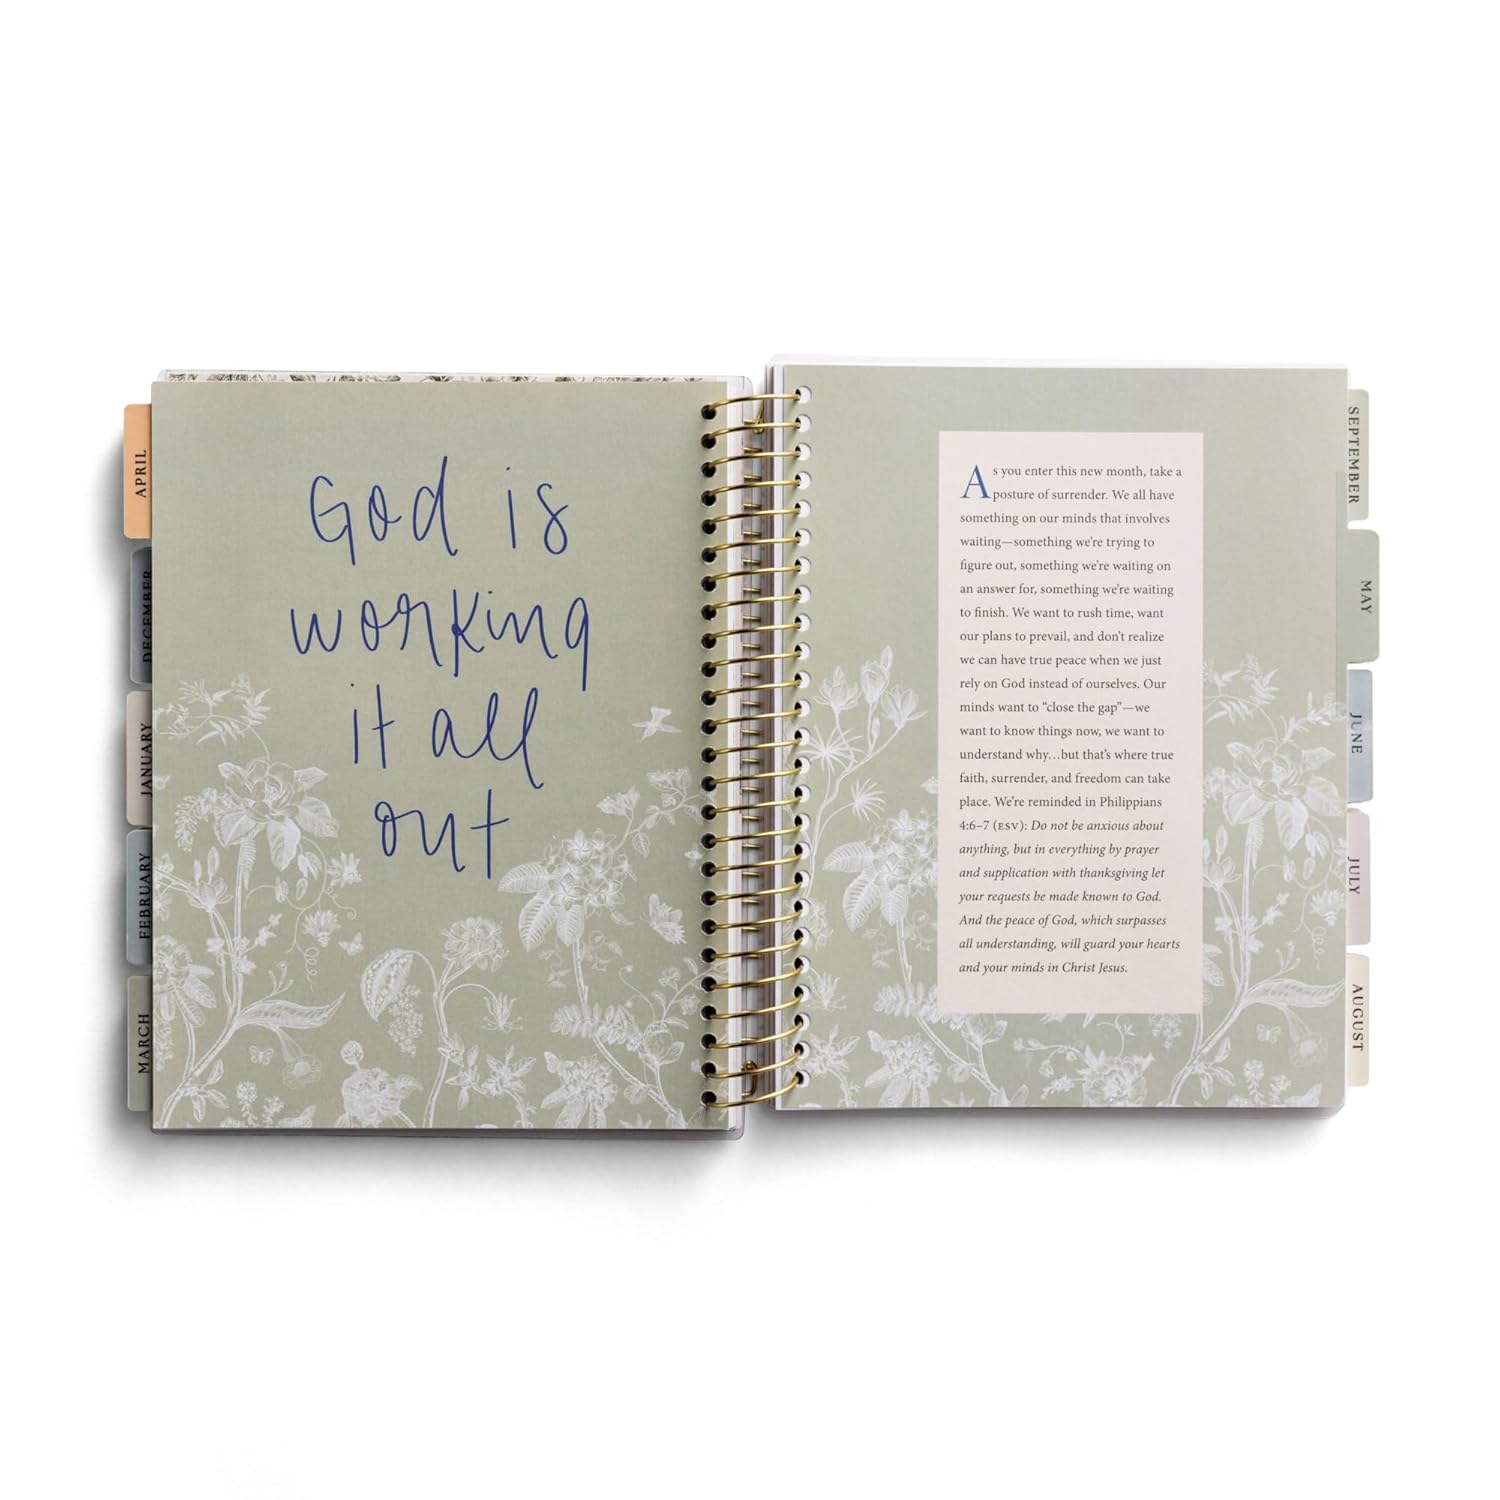 APRIL
DECEMBER
JANUARY
FEBRUARY
MARCH
God is
working
it all
out
As you enter this new month, take a
posture of surrender. We all have
something on our minds that involves
waiting—something we're trying to
figure out, something we're waiting on
an answer for, something we're waiting
to finish. We want to rush time, want
our plans to prevail, and don't realize
we can have true peace when we just
rely on God instead of ourselves. Our
minds want to “close the gap”—we
want to know things now, we want to
understand why…but that's where true
faith, surrender, and freedom can take
place. We're reminded in Philippians
4:6–7 (ESV): Do not be anxious about
anything, but in everything by prayer
and supplication with thanksgiving let
your requests be made known to God.
And the peace of God, which surpasses
all understanding, will guard your hearts
and your minds in Christ Jesus.
SEPTEMBER
MAY
JUNE
JULY
AUGUST